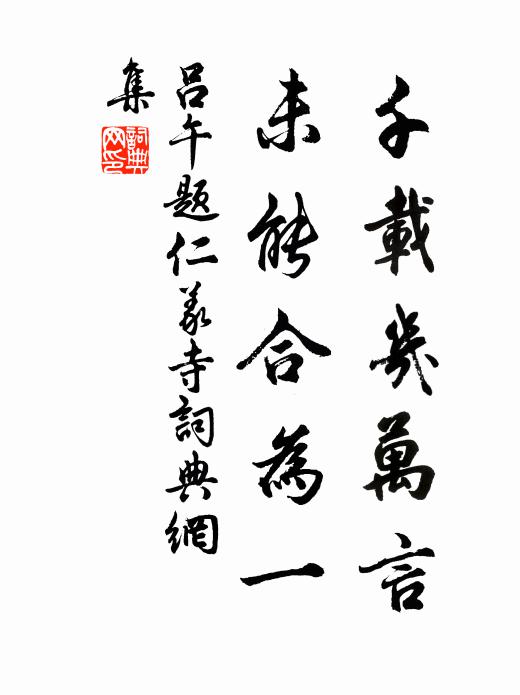 千載幾萬言
未能合為一
呂午題仁義寺詞典網
集
詞典網印